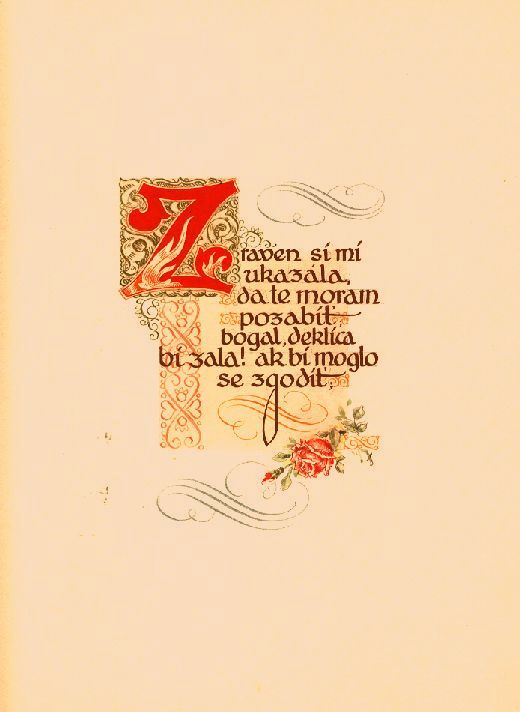 Zraven si mi
ukazála,
da te moram
pozabit,
bogal, deklica
bi zala! ak bi moglo
se zgodit,